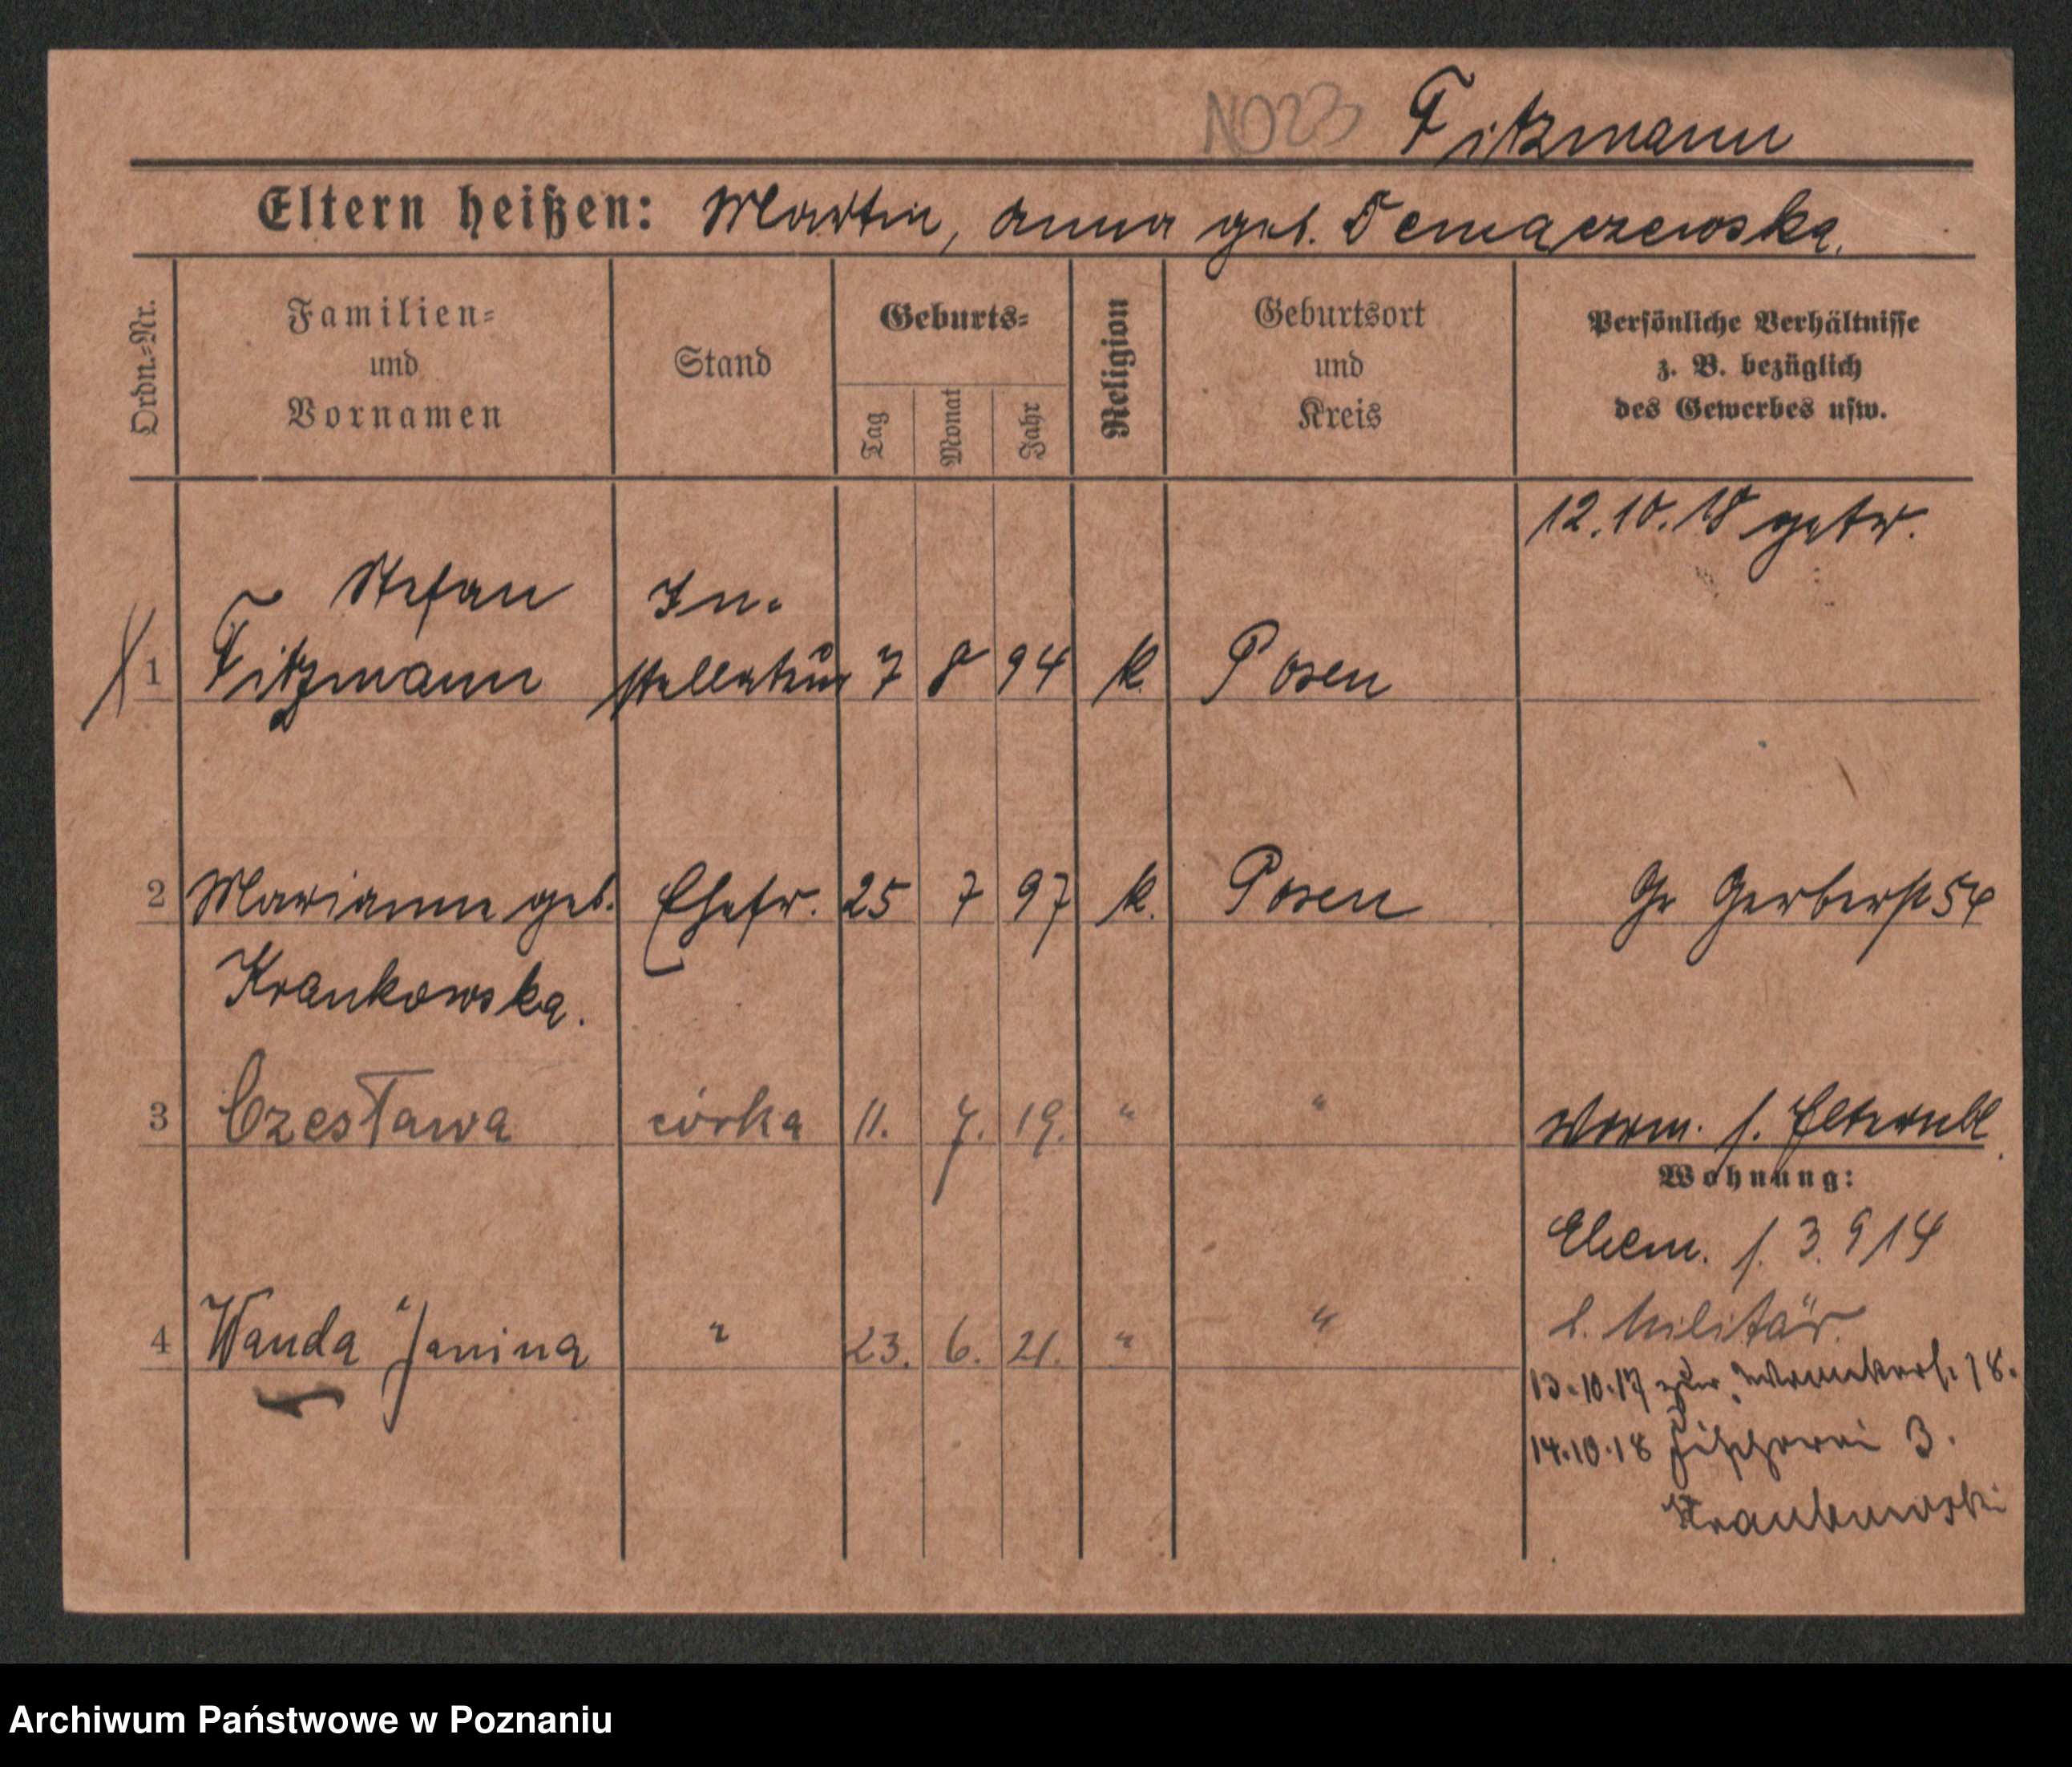 NO23 Fitzmann
Eltern heißen: Martin, Anna geb. Demaczewska.
Ordn.-Nr.
Familien- und Vornamen
Stand
Geburts-
Tag
Monat
Jahr
Religion
Geburtsort und Kreis
Persönliche Verhältnisse z. B. bezüglich des Gewerbes usw.
12.10.18 getr.
Stefan In-
1 Fitzmann stallateur 7 8 94 k. Posen
2 Marianna geb. Ehefr. 25 7 97 k. Posen Gr Gerberst 54
Krankowska.
3 Czesława córka 11. 7. 19. " " Worm. s. Elternbl.
Wohnung:
Ehem. s. 3. 9 14
z. Militär.
4 Wanda Janina " 23. 6. 21. " "
13.10.17 18.
14.10.18 Fischerei 3.
Krankowski
Archiwum Państwowe w Poznaniu